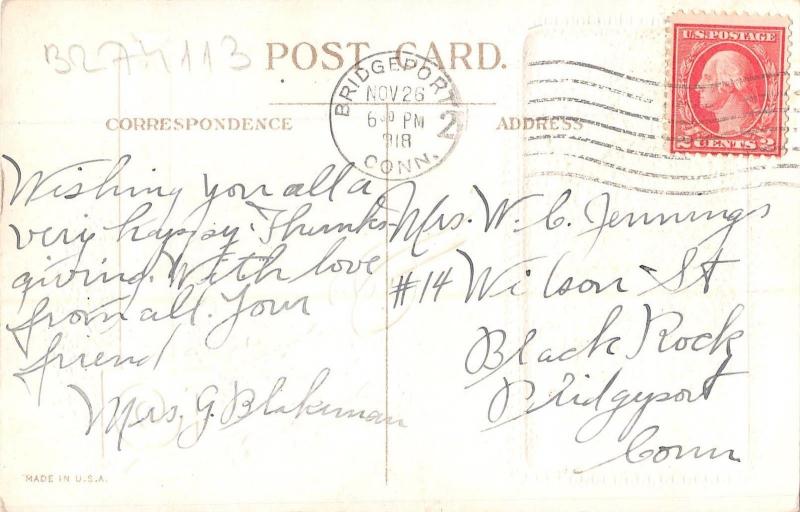 B274113
POST CARD.
U.S. POSTAGE
2 CENTS 2
BRIDGEPORT
NOV 26
6 30 PM
1918
CONN.
2
CORRESPONDENCE
ADDRESS
Wishing you all a
very happy Thanks
giving. With love
from all. Your
friend
Mrs. G. Blakeman
Mrs. W. C. Jennings
#14 Wilson St
Black Rock
Bridgeport
Conn
MADE IN U.S.A.